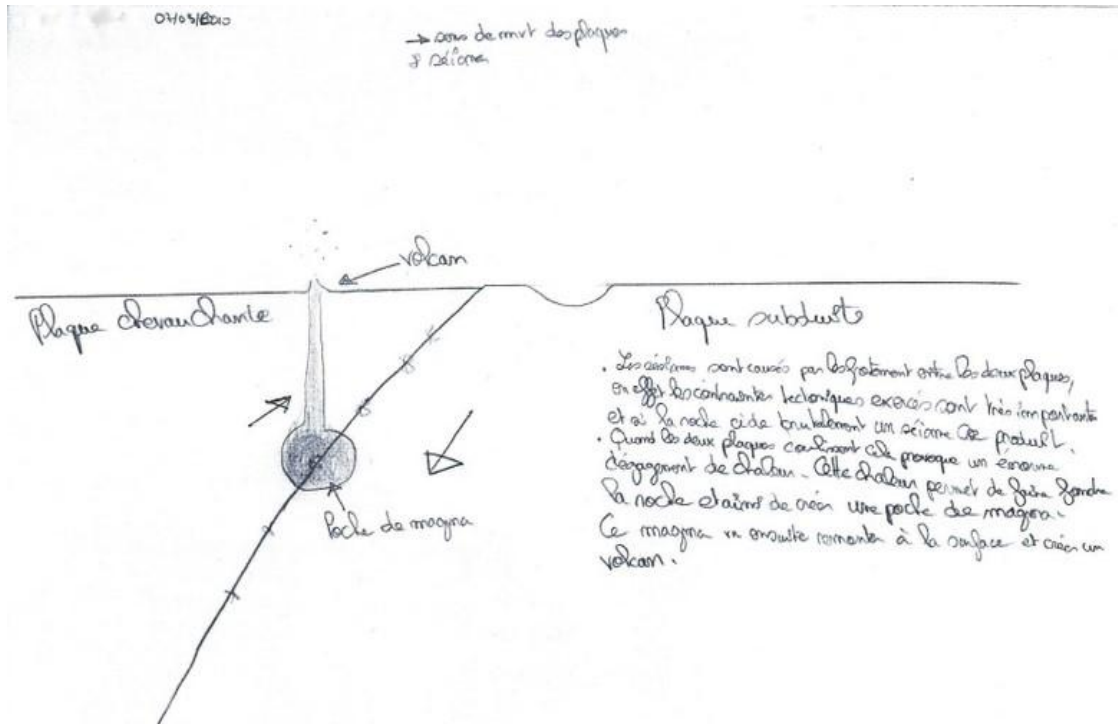 → sens de mvt des plaques
séismes
volcan
Plaque chevauchante
Plaque subduite
Poche de magma
. Les séismes sont causés par les frotement entre les deux plaques,
en effet les contraintes tectoniques exercés sont très importantes
et si la roche cède brutalement un séisme se produit.
. Quand les deux plaques coulissent cela provoque un énorme
dégagement de chaleur. Cette chaleur permet de faire fondre
la roche et ainsi de créer une poche de magma.
Ce magma va ensuite remonter à la surface et créer un
volcan.